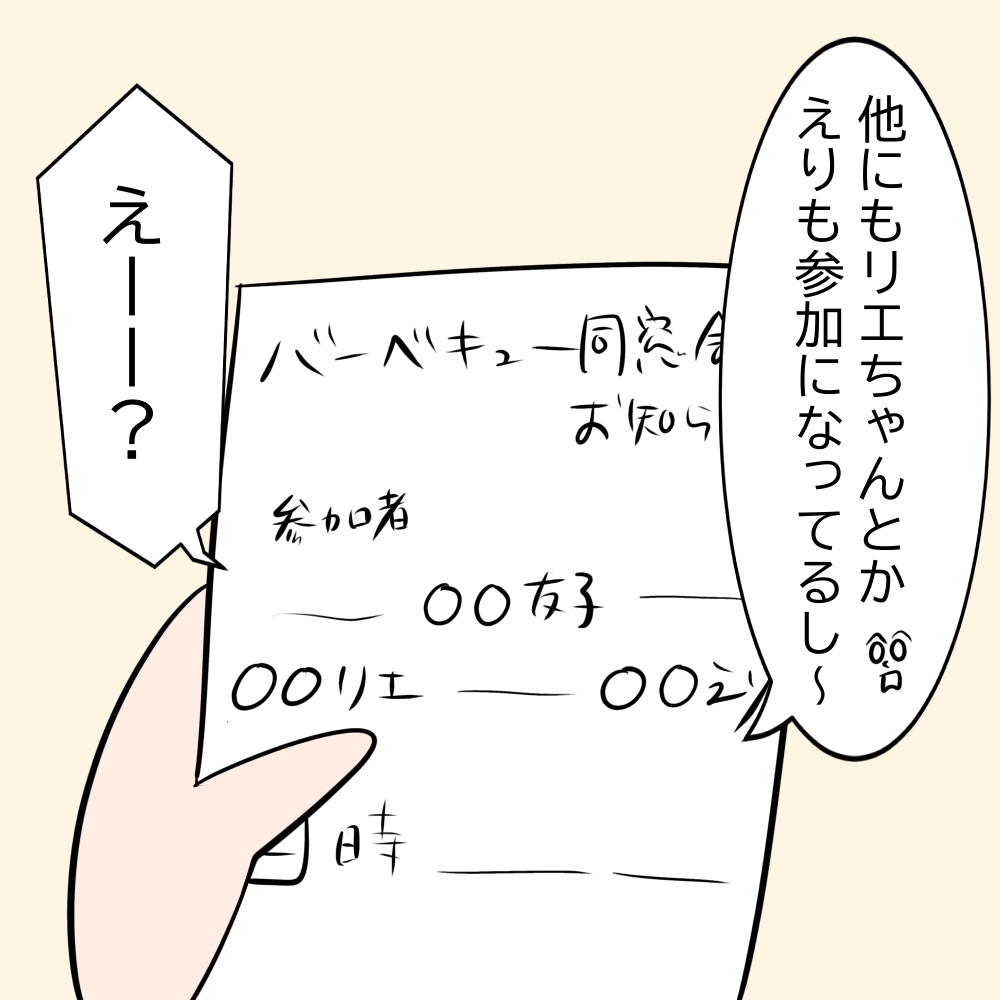 他にもリエちゃんとか
えりも参加になってるし～
えーー？
バーベキュー同窓会
お知ら
参加者
〇〇友子
〇〇リエ 〇〇えり
日時